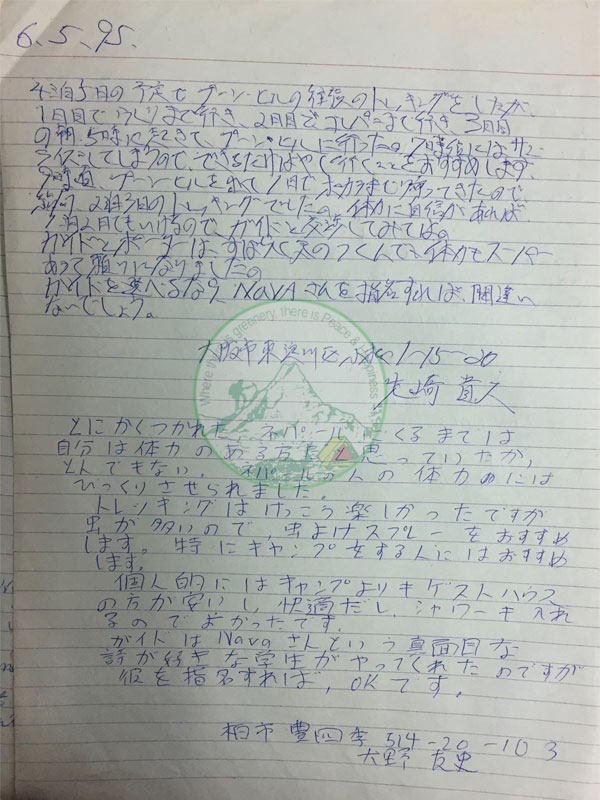 6.5.95.
4泊5日の予定でプーン・ヒルの往復のトレッキングをしたが、
1日目で まで行き、2日目で まで行き、3日目
の朝、5時に起きて、プーン・ヒルに行った。7時位にはサン
ライズしてしまうので、できるだけはやく行くことをおすすめします。
プーンヒルを出て1日でポカラまで帰ってきたので
結局、2泊3日のトレッキングでした。体力に自信があれば
1泊2日でもいけるので、ガイドと交渉してみては。
ガイドとポーターは、すばらしく で、体力もスーパー
あって頼りになりました。
ガイドを選べるなら、NAVAさんを指名すれば、間違い
ないでしょう。
Where there is greenery, there is Peace & Happiness
大阪市東淀川区 1-15-20
先崎 直人
とにかくつかれた。ネパールにくるまでは
自分は体力のある方だと思っていたが、
とんでもない。ネパールの人の体力には
びっくりさせられました。
トレッキングはけっこう楽しかったですが
虫が多いので、虫よけスプレーをおすすめ
します。特にキャンプをする人にはおすすめ
します。
個人的にはキャンプよりもゲストハウス
の方が安いし、快適だし、シャワーも入れ
るのでよかったです。
ガイドはNavaさんという真面目な
詩が好きな学生がやってくれたのですが
彼を指名すれば、OKです。
柏市 豊四季 514-20-103
大野 友史